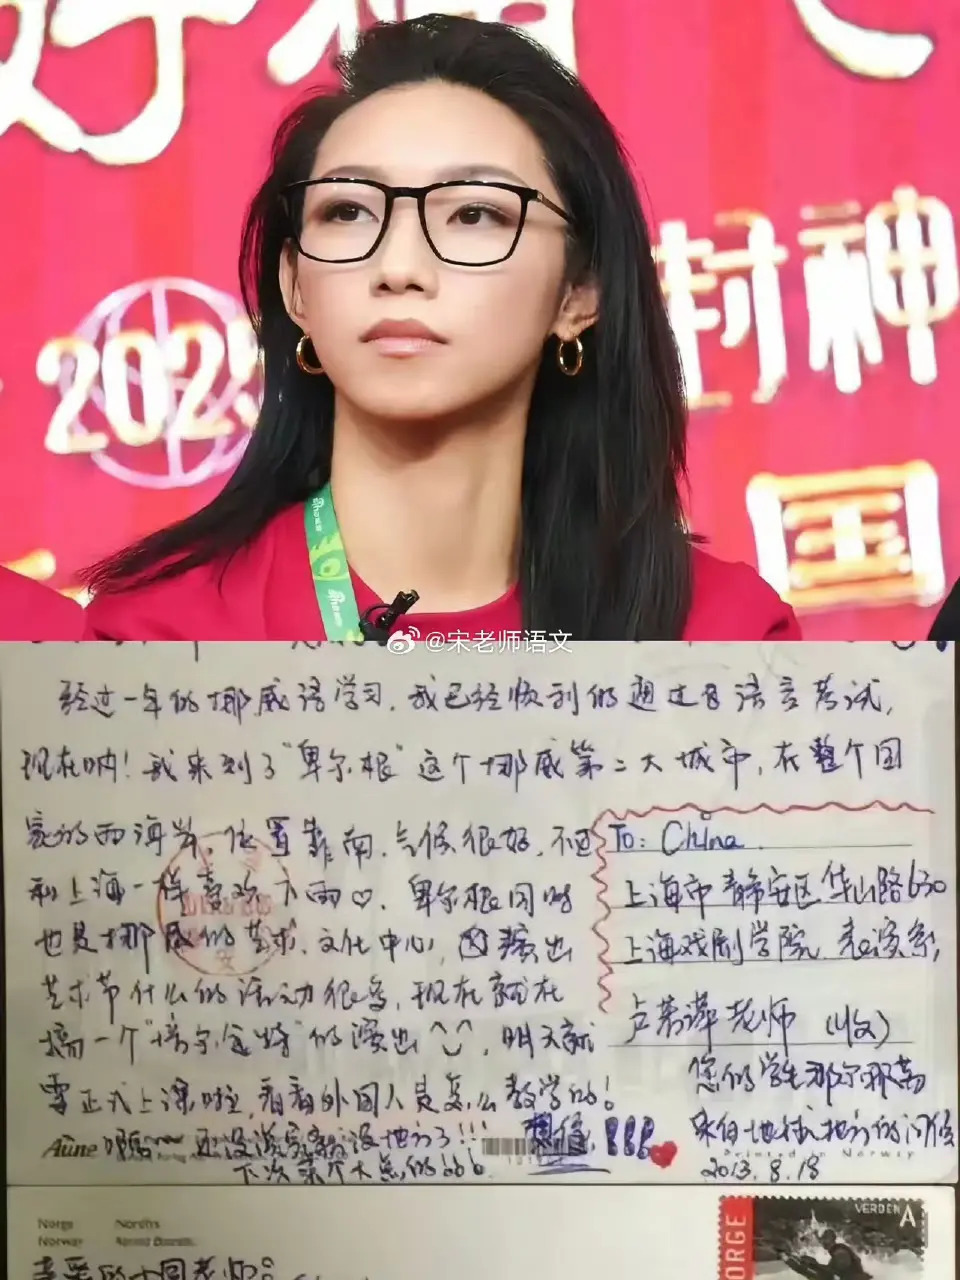 好
2025
封神
国
@宋老师语文
经过一年的挪威语学习,我已经顺利的通过B语言考试,
现在呐!我来到了"卑尔根"这个挪威第二大城市,在整个国
家的西海岸,位置靠南,气候很好,不过
和上海一样喜欢下雨♡.卑尔根同时
也是挪威的艺术、文化中心,演出
艺术节什么的活动很多,现在就在
搞一个"培尔·金特"的演出^_^,明天就
要正式上课啦,看看外国人是怎么教学的!
还没说完就没地方了!!!
下次弄个大点的
To: China
上海市静安区华山路630
上海戏剧学院 表演系
老师 (收)
您的学生那尔那茜
来自地球北方的问候
2013.8.18
Aune
Printed in Norway
Norge
Norway
NORGE
VERDEN A